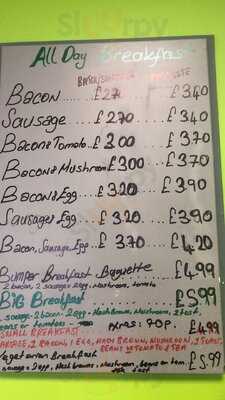 All Day Breakfast
Bacon £2.70 £3.40
Sausage £2.70 £3.40
Bacon & Tomato £3.00 £3.70
Bacon & Mushroom £3.00 £3.70
Bacon & Egg £3.20 £3.90
Sausage & Egg £3.20 £3.90
Bacon, Sausage, Egg £3.70 £4.20
Bumper Breakfast Baguette £4.99
2 bacon, 2 sausage, 2 egg, Mushroom, tomato
BiG Breakfast £5.99
sausage - 2 bacon - 2 egg - Hash Brown, Mushroom, 2 toast,
beans or tomatoes - EXTRAS : 70P. £4.99
SMALL BREAKFAST :
SAUSAGE, 2 BACON, 1 EGG, HASH BROWN, MUSHROOM, 2 TOAST,
BEANS or TOMATO & TEA
Vegetarian Breakfast £5.99
sausage 2 egg, Hash browns, Mushroom, beans or tom.